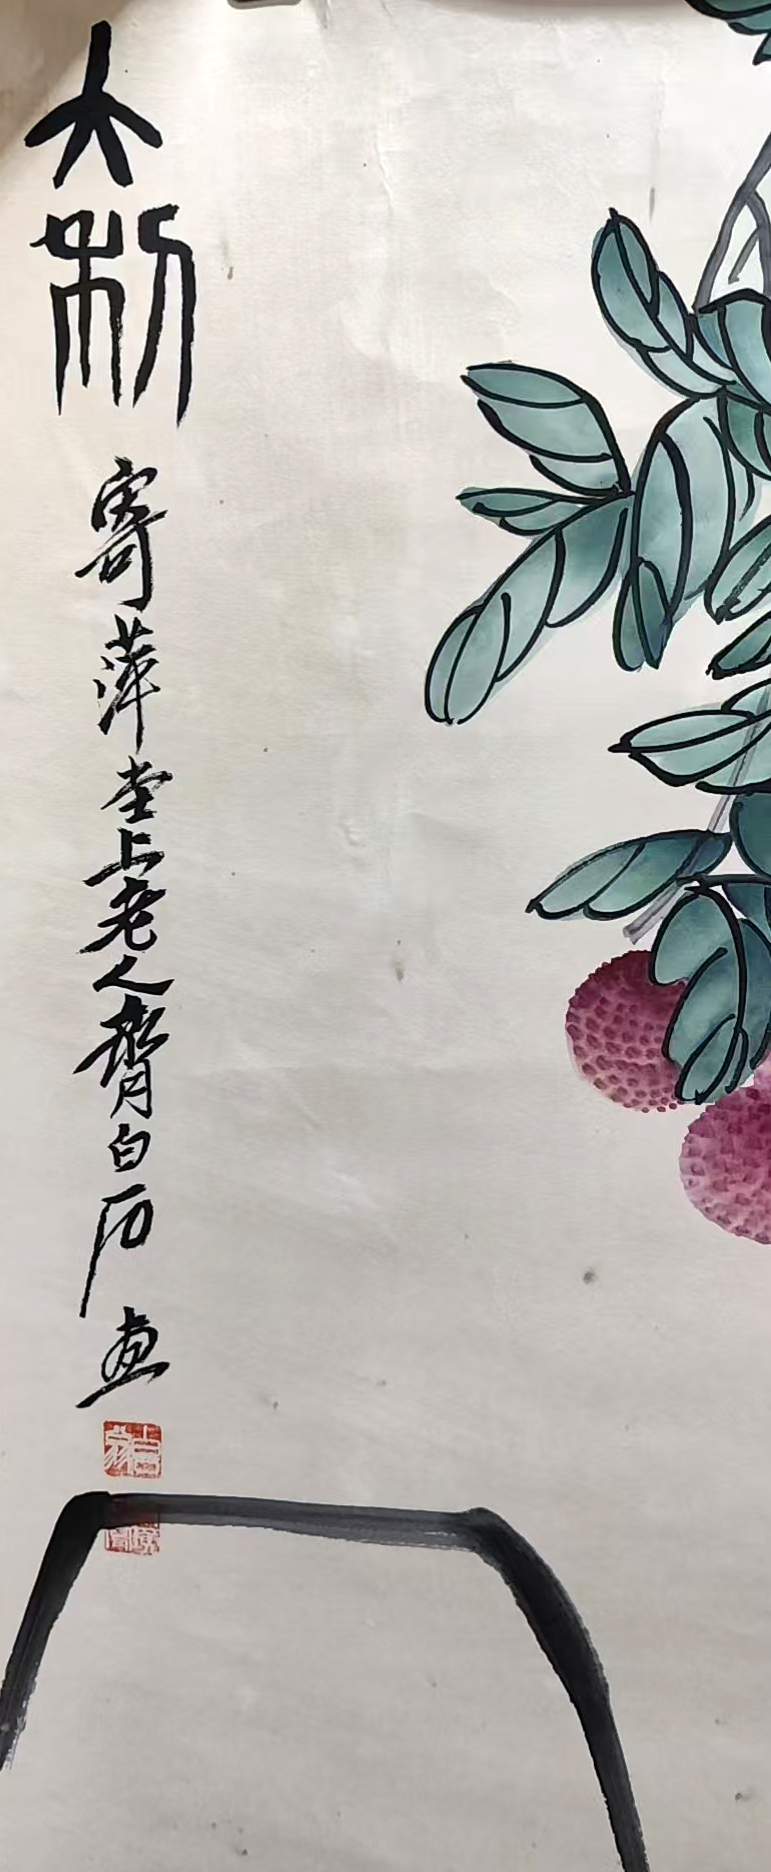 大利
寄萍堂上老人齊白石画